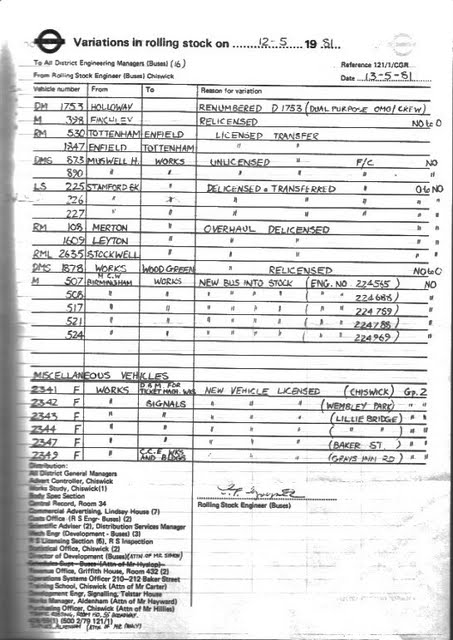 Variations in rolling stock on 12-5 19 81.
To All District Engineering Managers (Buses) (16)
Reference 121/1/CGR
From Rolling Stock Engineer (Buses) Chiswick
Date 13-5-81
Vehicle number From To Reason for variation
DM 1753 HOLLOWAY RENUMBERED D 1753 (DUAL PURPOSE OMO/CREW)
M 398 FINCHLEY RELICENSED NO to O
RM 530 TOTTENHAM ENFIELD LICENSED TRANSFER
1347 ENFIELD TOTTENHAM " "
DMS 873 MUSWELL H. WORKS UNLICENSED F/C NO
890 " " " " "
LS 225 STAMFORD BK. " DELICENSED & TRANSFERRED " O to NO
226 " " " " " "
227 " " " " " "
RM 108 MERTON " OVERHAUL DELICENSED "
1609 LEYTON " " " "
RML 2635 STOCKWELL " " " "
DMS 1878 WORKS WOOD GREEN " RELICENSED NO to O
M 507 M.C.W BIRMINGHAM WORKS NEW BUS INTO STOCK (ENG. NO 224565) NO
508 " " " " " " ( " " 224688) "
517 " " " " " " ( " " 224759) "
521 " " " " " " ( " " 224788) "
524 " " " " " " ( " " 224969) "
MISCELLANEOUS VEHICLES
2341 F WORKS D & M. FOR TICKET MACH. WKS NEW VEHICLE LICENSED (CHISWICK) Gp. 2
2342 F " SIGNALS " " " (WEMBLEY PARK) " "
2343 F " " " " " (LILLIE BRIDGE) " "
2344 F " " " " " ( " " ) " "
2347 F " " " " " (BAKER ST. ) " "
2349 F " C.C.E. WKS AND BLDGS " " " (GRAYS INN RD) " "
Distribution:
All District General Managers
Advert Controller, Chiswick
Works Study, Chiswick(1)
Body Spec Section
Central Record, Room 34
Commercial Advertising, Lindsay House (7)
Costs Office (R S Engr- Buses) (2)
Scientific Adviser (2), Distribution Services Manager
Mech Engr (Development) (3)
R S Licensing Section (6), R S Inspection
Statistical Office, Chiswick (2)
Director of Development (Buses) (ATTN OF MR. SIMON)
Schedules Dept - Buses (Attn of Mr Hyslop)
Revenue Office, Griffith House, Room 432 (2)
Operations Systems Officer 210-212 Baker Street
Training School, Chiswick (Attn of Mr Carter)
Development Engr, Signalling, Telstar House
Works Manager, Aldenham (Attn of Mr Hayward)
Purchasing Officer, Chiswick (Attn of Mr Hillies)
ROOM 55 BROADWAY.
(500 2/79 121/1)
ALDENHAM (ATTN OF MR
Rolling Stock Engineer (Buses)